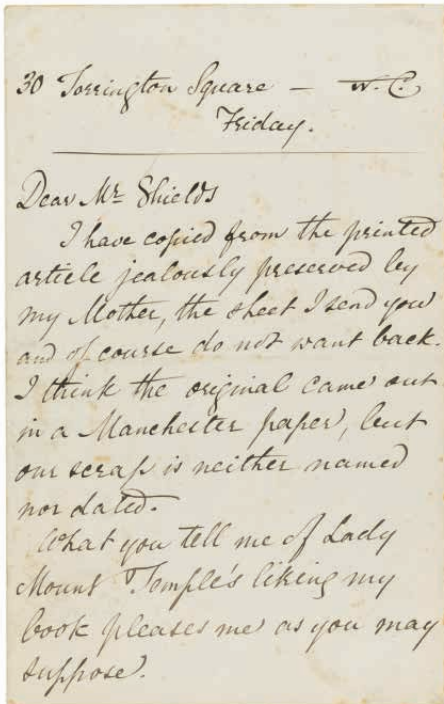 30 Torrington Square — W. C.
Friday.
Dear Mr. Shields
I have copied from the printed
article jealously preserved by
my Mother, the sheet I send you
and of course do not want back.
I think the original came out
in a Manchester paper, but
our scrap is neither named
nor dated.
What you tell me of Lady
Mount Temple's liking my
book pleases me as you may
suppose.